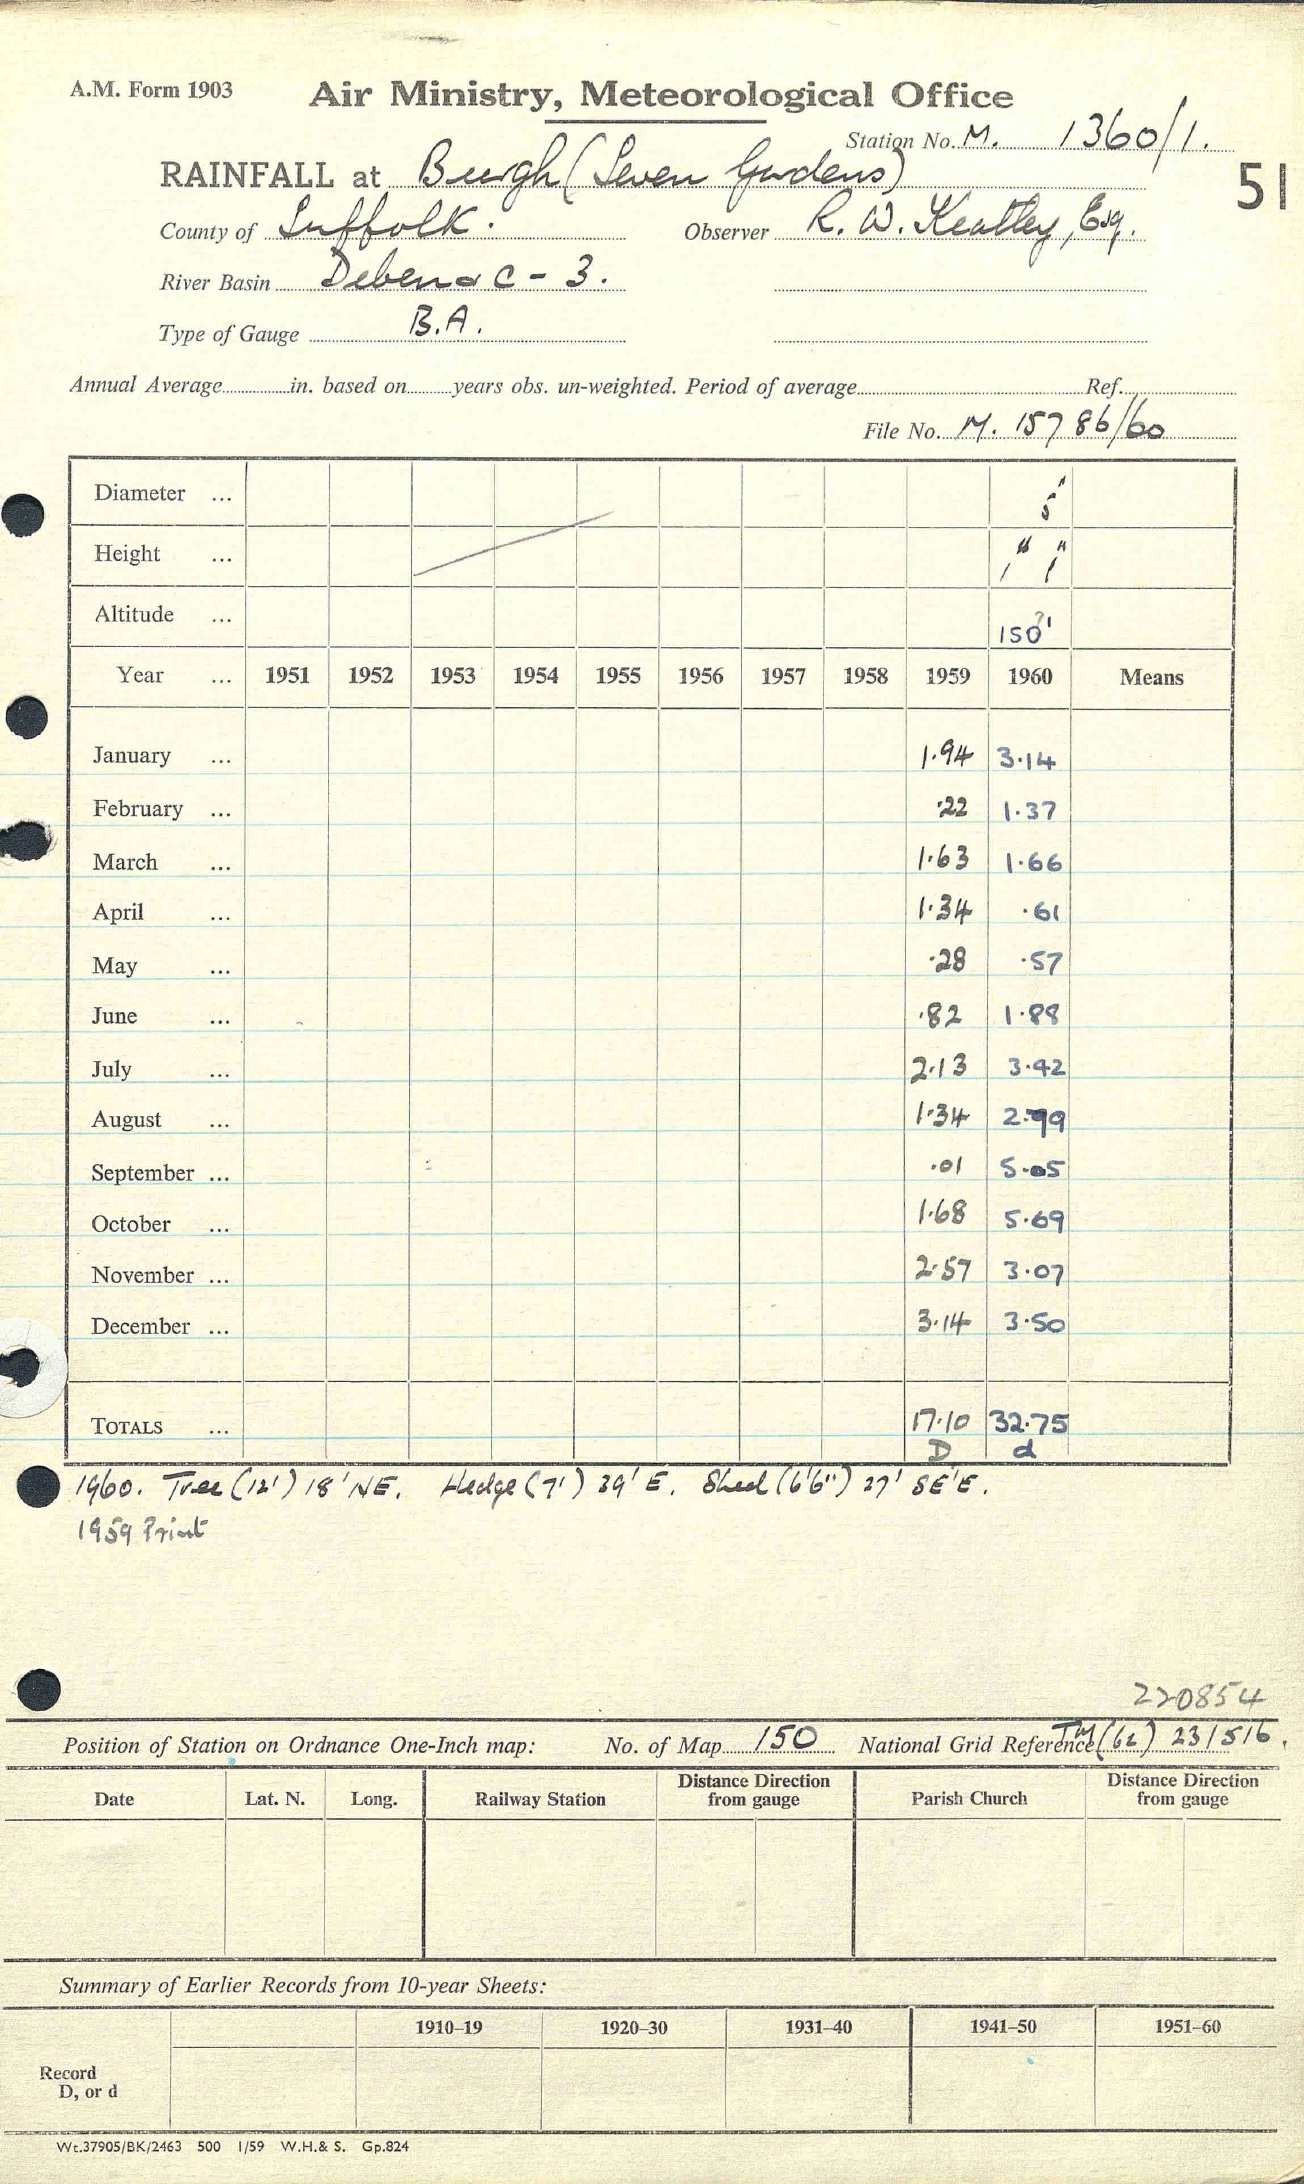 A.M. Form 1903
Air Ministry, Meteorological Office
Station No. M. 1360/1.
RAINFALL at Burgh (Seven Gardens)
51
County of Suffolk. Observer R. W. Keatley, Esq.
River Basin Deben & C - 3.
Type of Gauge B.A.
Annual Average in. based on years obs. un-weighted. Period of average Ref.
File No. M. 15786/60
Diameter ... 5"
Height ... 1" 1"
Altitude ... 150?'
Year ... 1951 1952 1953 1954 1955 1956 1957 1958 1959 1960 Means
January ... 1.94 3.14
February ... .22 1.37
March ... 1.63 1.66
April ... 1.34 .61
May ... .28 .57
June ... .82 1.88
July ... 2.13 3.42
August ... 1.34 2.79
September ... .01 5.05
October ... 1.68 5.69
November ... 2.57 3.07
December ... 3.14 3.50
TOTALS ... 17.10 32.75
D d
1960. Tree (12') 18' NE. Hedge (7') 39' E. Shed (6'6") 27' SE'E.
1959 Print
220854
Position of Station on Ordnance One-Inch map: No. of Map 150 National Grid Reference TM (62) 231516.
Date Lat. N. Long. Railway Station Distance Direction from gauge Parish Church Distance Direction from gauge
Summary of Earlier Records from 10-year Sheets:
1910–19 1920–30 1931–40 1941–50 1951–60
Record
D, or d
Wt.37905/BK/2463 500 1/59 W.H.& S. Gp.824